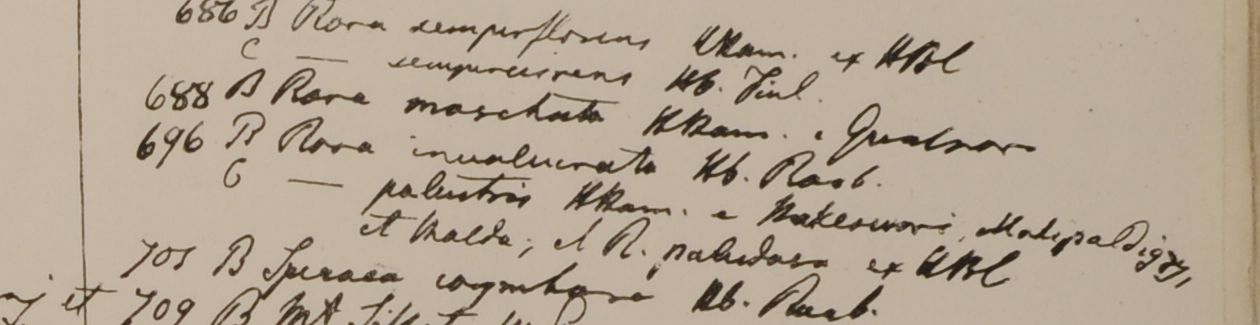 686 B Rosa semperflorens HHam. ex HBC
C — sempervirens Hb. Finl.
688 B Rosa moschata HHam. e Gualpara
696 B Rosa involucrata Hb. Roxb.
C — palustris HHam. e
et Malda; et R. paludosa ex HBC
701 B Spiraea corymbosa Hb. Roxb.
et 709 B